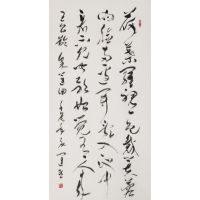 荷葉羅裙一色裁芙蓉
向臉兩邊開亂入池中
看不見聞歌始覺有人來
王昌齡采蓮曲